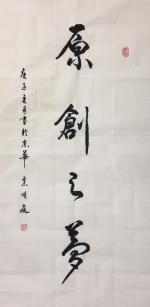 原創之夢
庚子之夏書於京華